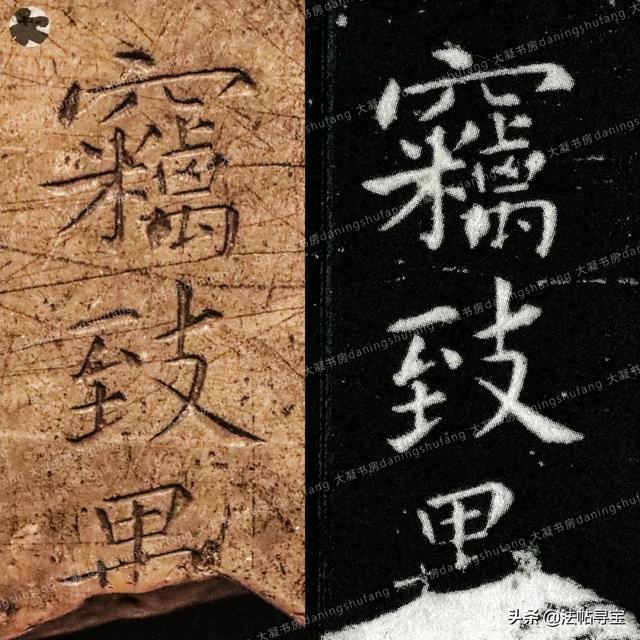 竊致里
竊致里
大凝书房daningshufang
头条 @法帖寻宝